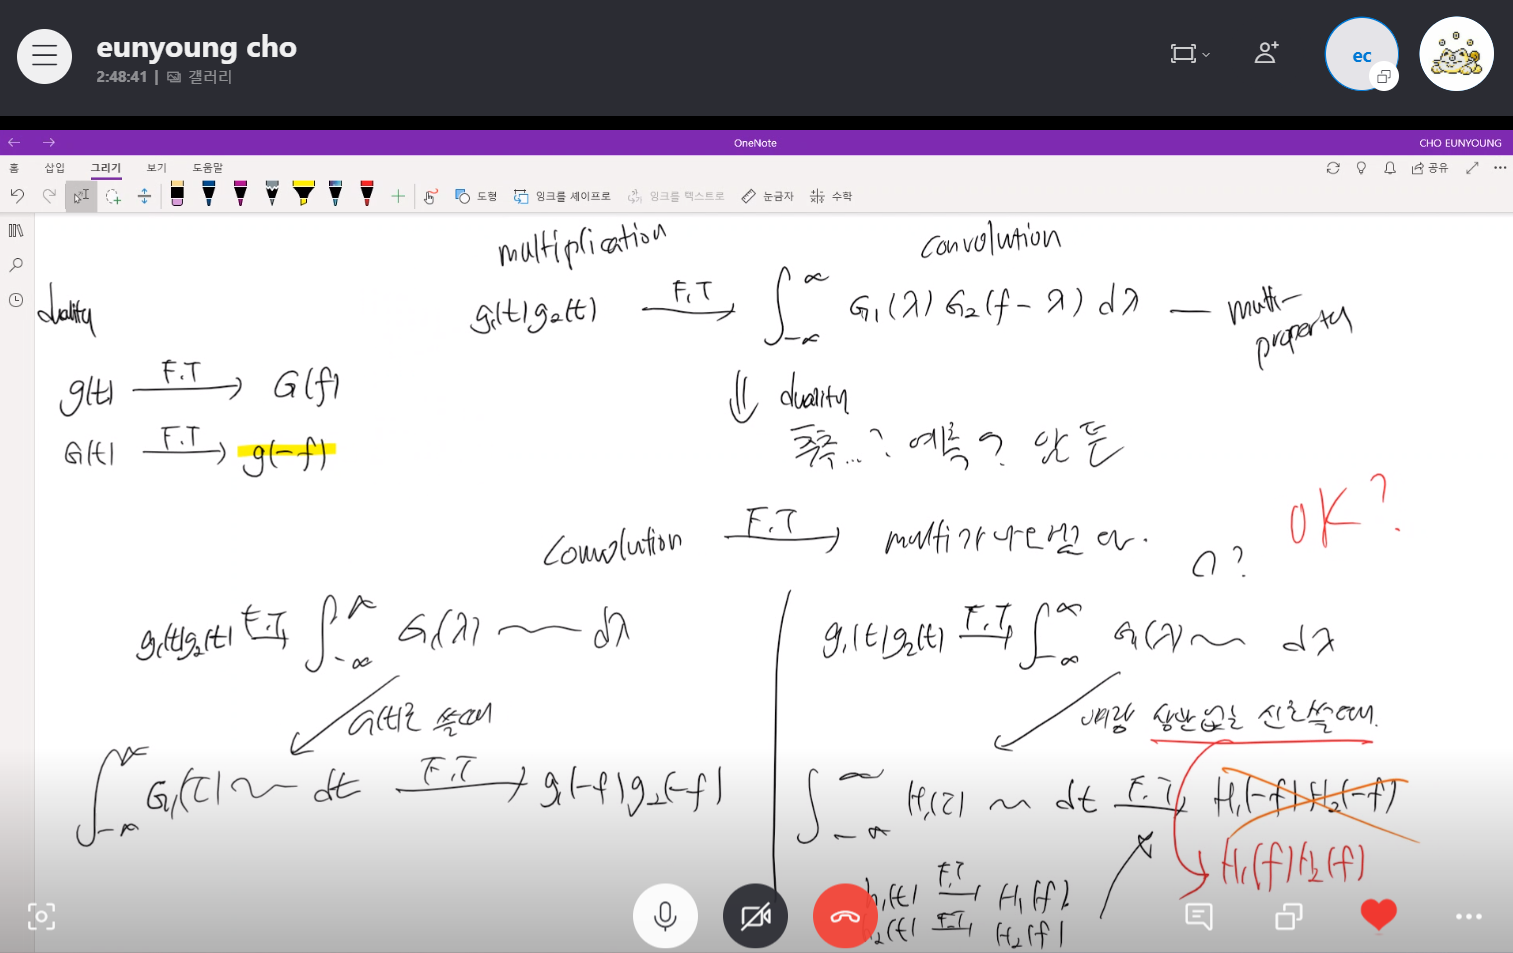 eunyoung cho
2:48:41 | 갤러리
ec
OneNote
CHO EUNYOUNG
홈 삽입 그리기 보기 도움말
공유
도형 잉크를 셰이프로 잉크를 텍스트로 눈금자 수학
multiplication convolution
duality
g₁(t)g₂(t) F.T ∫ ∞ -∞ G₁(λ) G₂(f-λ) dλ — multi-property
g(t) F.T G(f)
duality
G(t) F.T g(-f)
추측...? 예측? 암튼
OK?
convolution F.T multi가 나온설
∩?
g₁(t)g₂(t) F.T ∫ ∞ -∞ G₁(λ) dλ
G(t)로 쓸때
∫ ∞ -∞ G₁(τ) dτ F.T g₁(-f)g₂(-f)
g₁(t)g₂(t) F.T ∫ ∞ -∞ G₁(λ) dλ
상관없는 신호쓸때.
∫ ∞ -∞ H₁(τ) dτ F.T H₁(-f)H₂(-f)
H₁(f)H₂(f)
h₁(t) F.T H₁(f).
₂(t) F.T H₂(f)